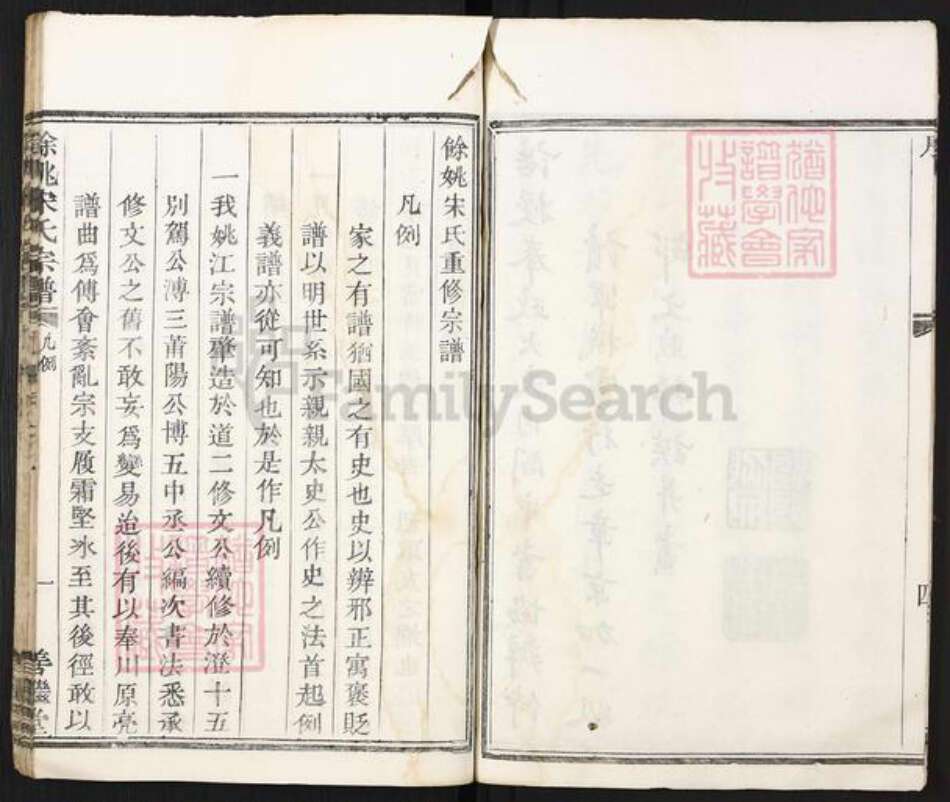 四
餘姚宋氏重修宗譜
凡例
家之有譜猶國之有史也史以辨邪正寓褒貶
譜以明世系示親親太史公作史之法首起例
義譜亦從可知也於是作凡例
一我姚江宗譜肇造於道二修文公續修於澄十五
別駕公溥三莆陽公博五中丞公編次書法悉承
修文公之舊不敢妄為變易迨後有以奉川原亮
譜曲為傅會紊亂宗支履霜堅氷至其後徑敢以
餘姚宋氏宗譜
凡例
一
善繼堂
FamilySearch